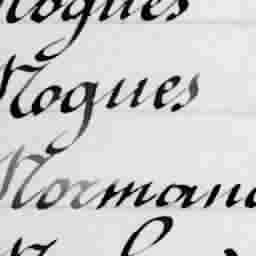 Nogues
Nogues
Norman